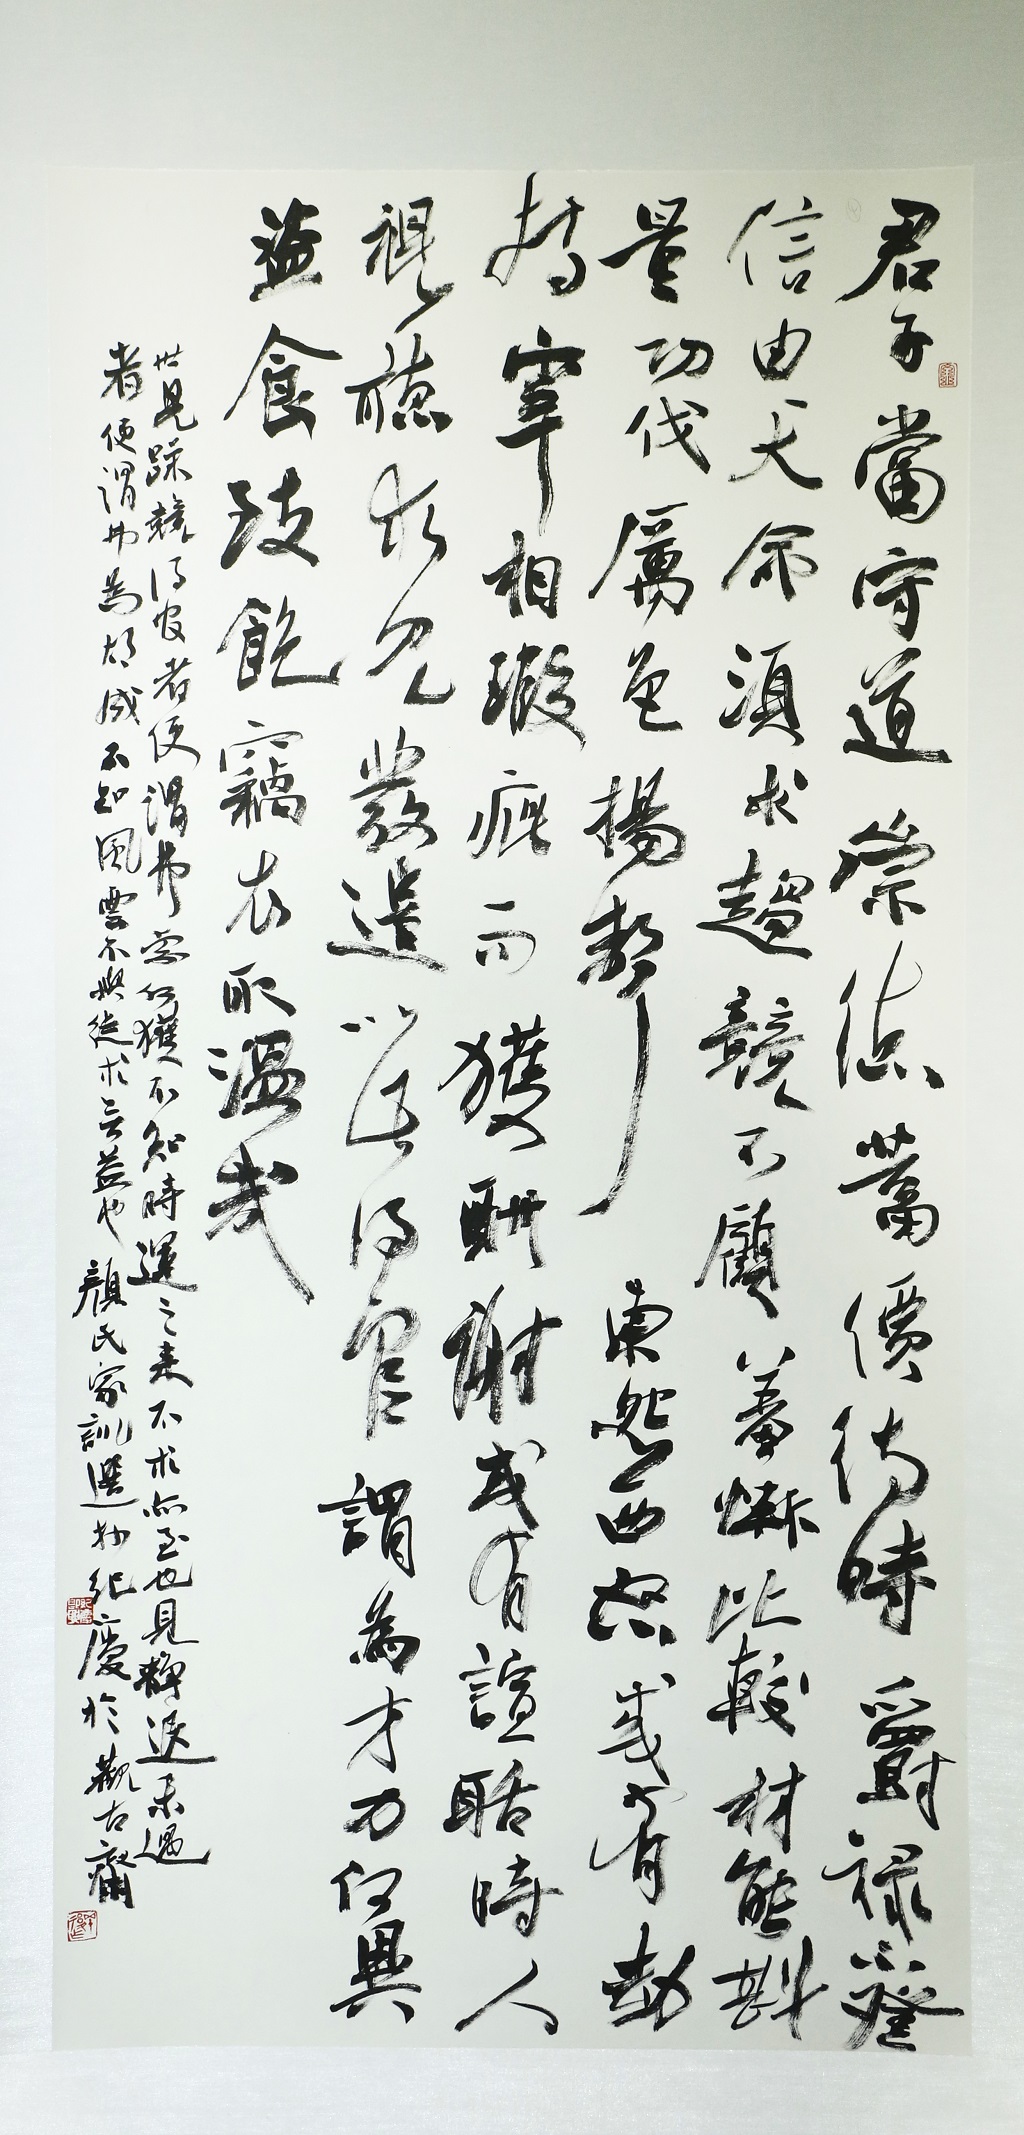 君子當守道崇德蓄價待時爵祿不登
信由天命須求趨競不顧羞慚比較材能斟
量功伐厲色揚聲東怨西怒或有劫
持宰相瑕疵而獲酬謝或有諠聒時人
視聽求見發遣以此得官謂為才力何異
盜食致飽竊衣取溫哉
世見躁競得官者便謂弗索何獲不知時運之來不求亦至也見靜退未遇
者便謂弗為胡成不知風雲不與徒求無益也 顏氏家訓選抄紀慶於觀古齋